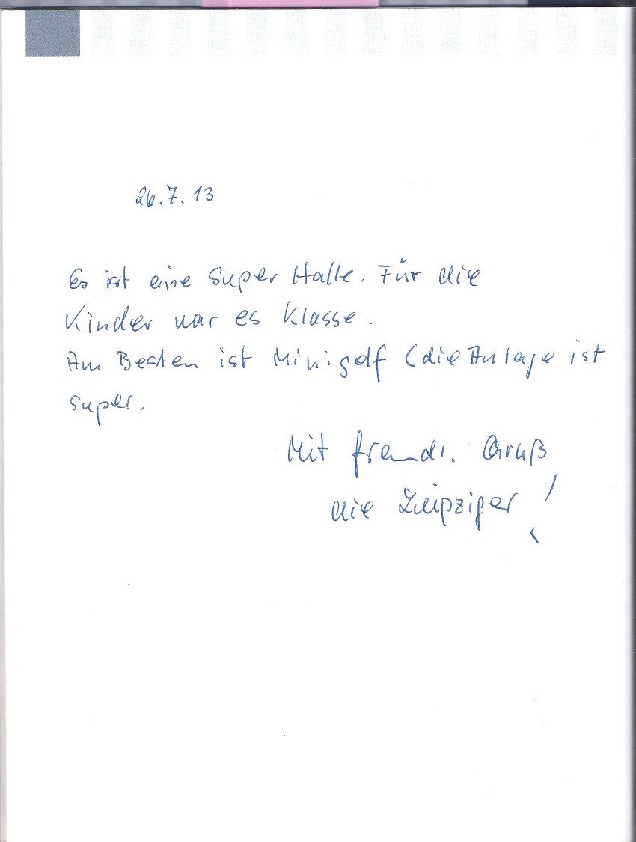 26.7.13
Es ist eine Super Halle. Für die
Kinder war es Klasse.
Am Besten ist Minigolf (die Anlage ist
super.
Mit freundl. Gruß
die Leipziger!